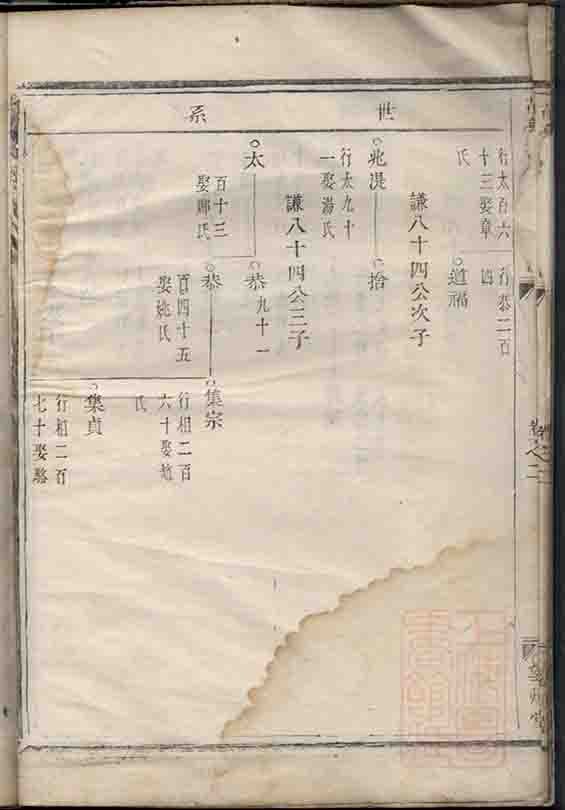 世系
行太百六
十三娶章
氏
行恭二百
四
道福
謙八十四公次子
兆湜
行太九十
一娶湯氏
捨
謙八十四公三子
太
百十三
娶鄭氏
恭九十一
恭
百四十五
娶姚氏
集宗
行相二百
六十娶趙
氏
集貞
行相二百
七十娶駱
卷之二